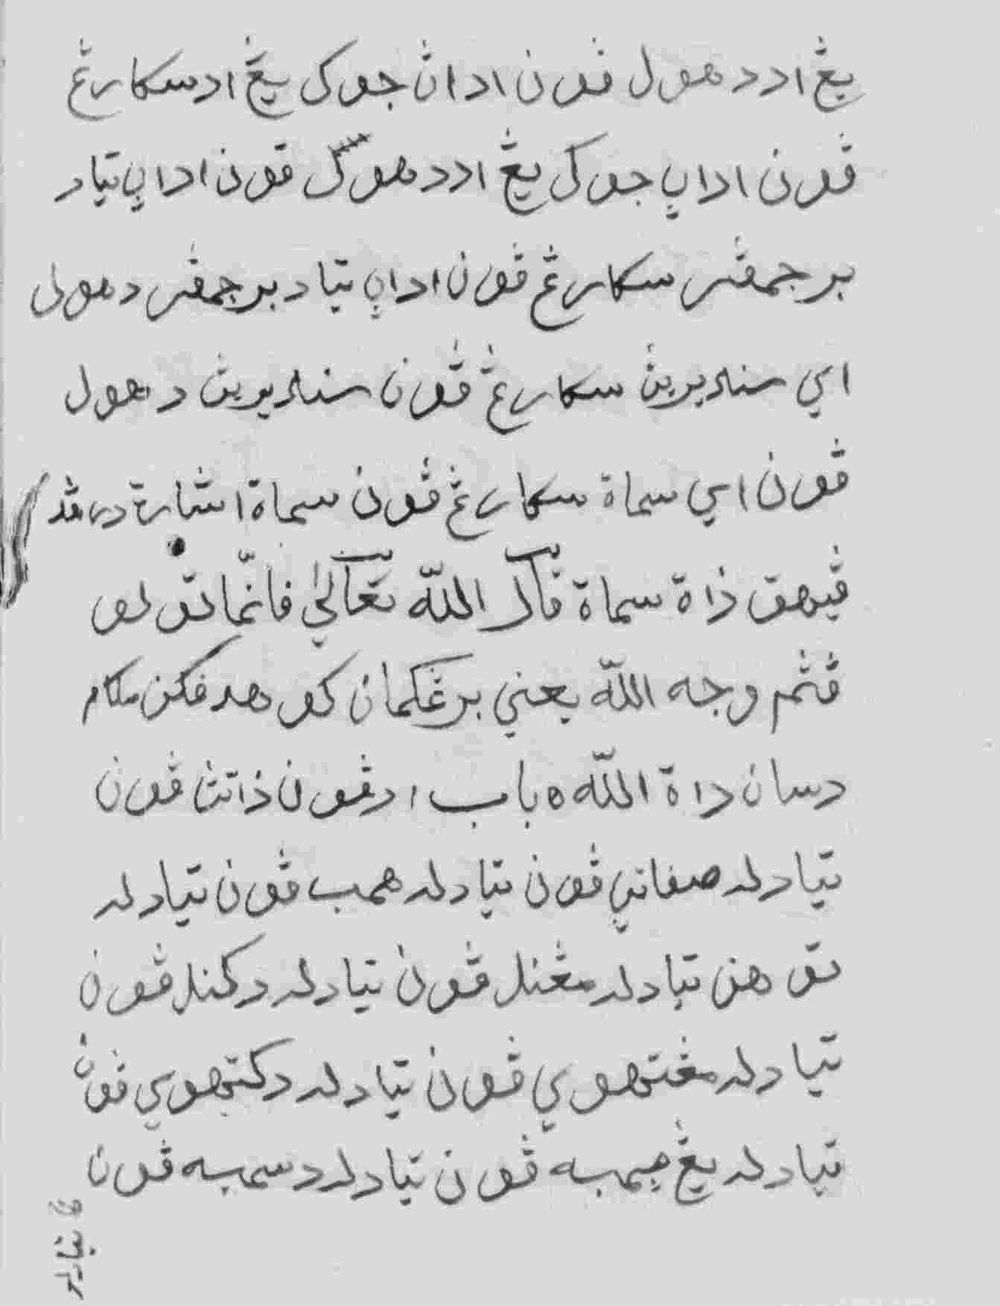 يڠ اد دهول ڤون اداڽ جوك يڠ اد سكارڠ
ڤون اداڽ جوك يڠ اد دهول ڤون اداڽ تياد
برجمڤر سكارڠ ڤون اداڽ تياد برجمڤر دهول
اي سنديريڽ سكارڠ ڤون سنديريڽ دهول
ڤون اي سماة سكارڠ ڤون سماة اشارة درڤد
ڤيهق ذاة سماة قال الله تعالى فانّما تولو
فثم وجه الله يعني برڠكمان كو هدڤكن مكام
دسان داة الله ه باب اد ڤون ذاتڽ ڤون
تيادله صفاتڽ ڤون تيادله همب ڤون تيادله
توهن تيادله مڠنل ڤون تيادله دكنل ڤون
تيادله مڠتهوي ڤون تيادله دكتهوي ڤون
تيادله يڠ ميمبه ڤون تيادله دسمبه ڤون